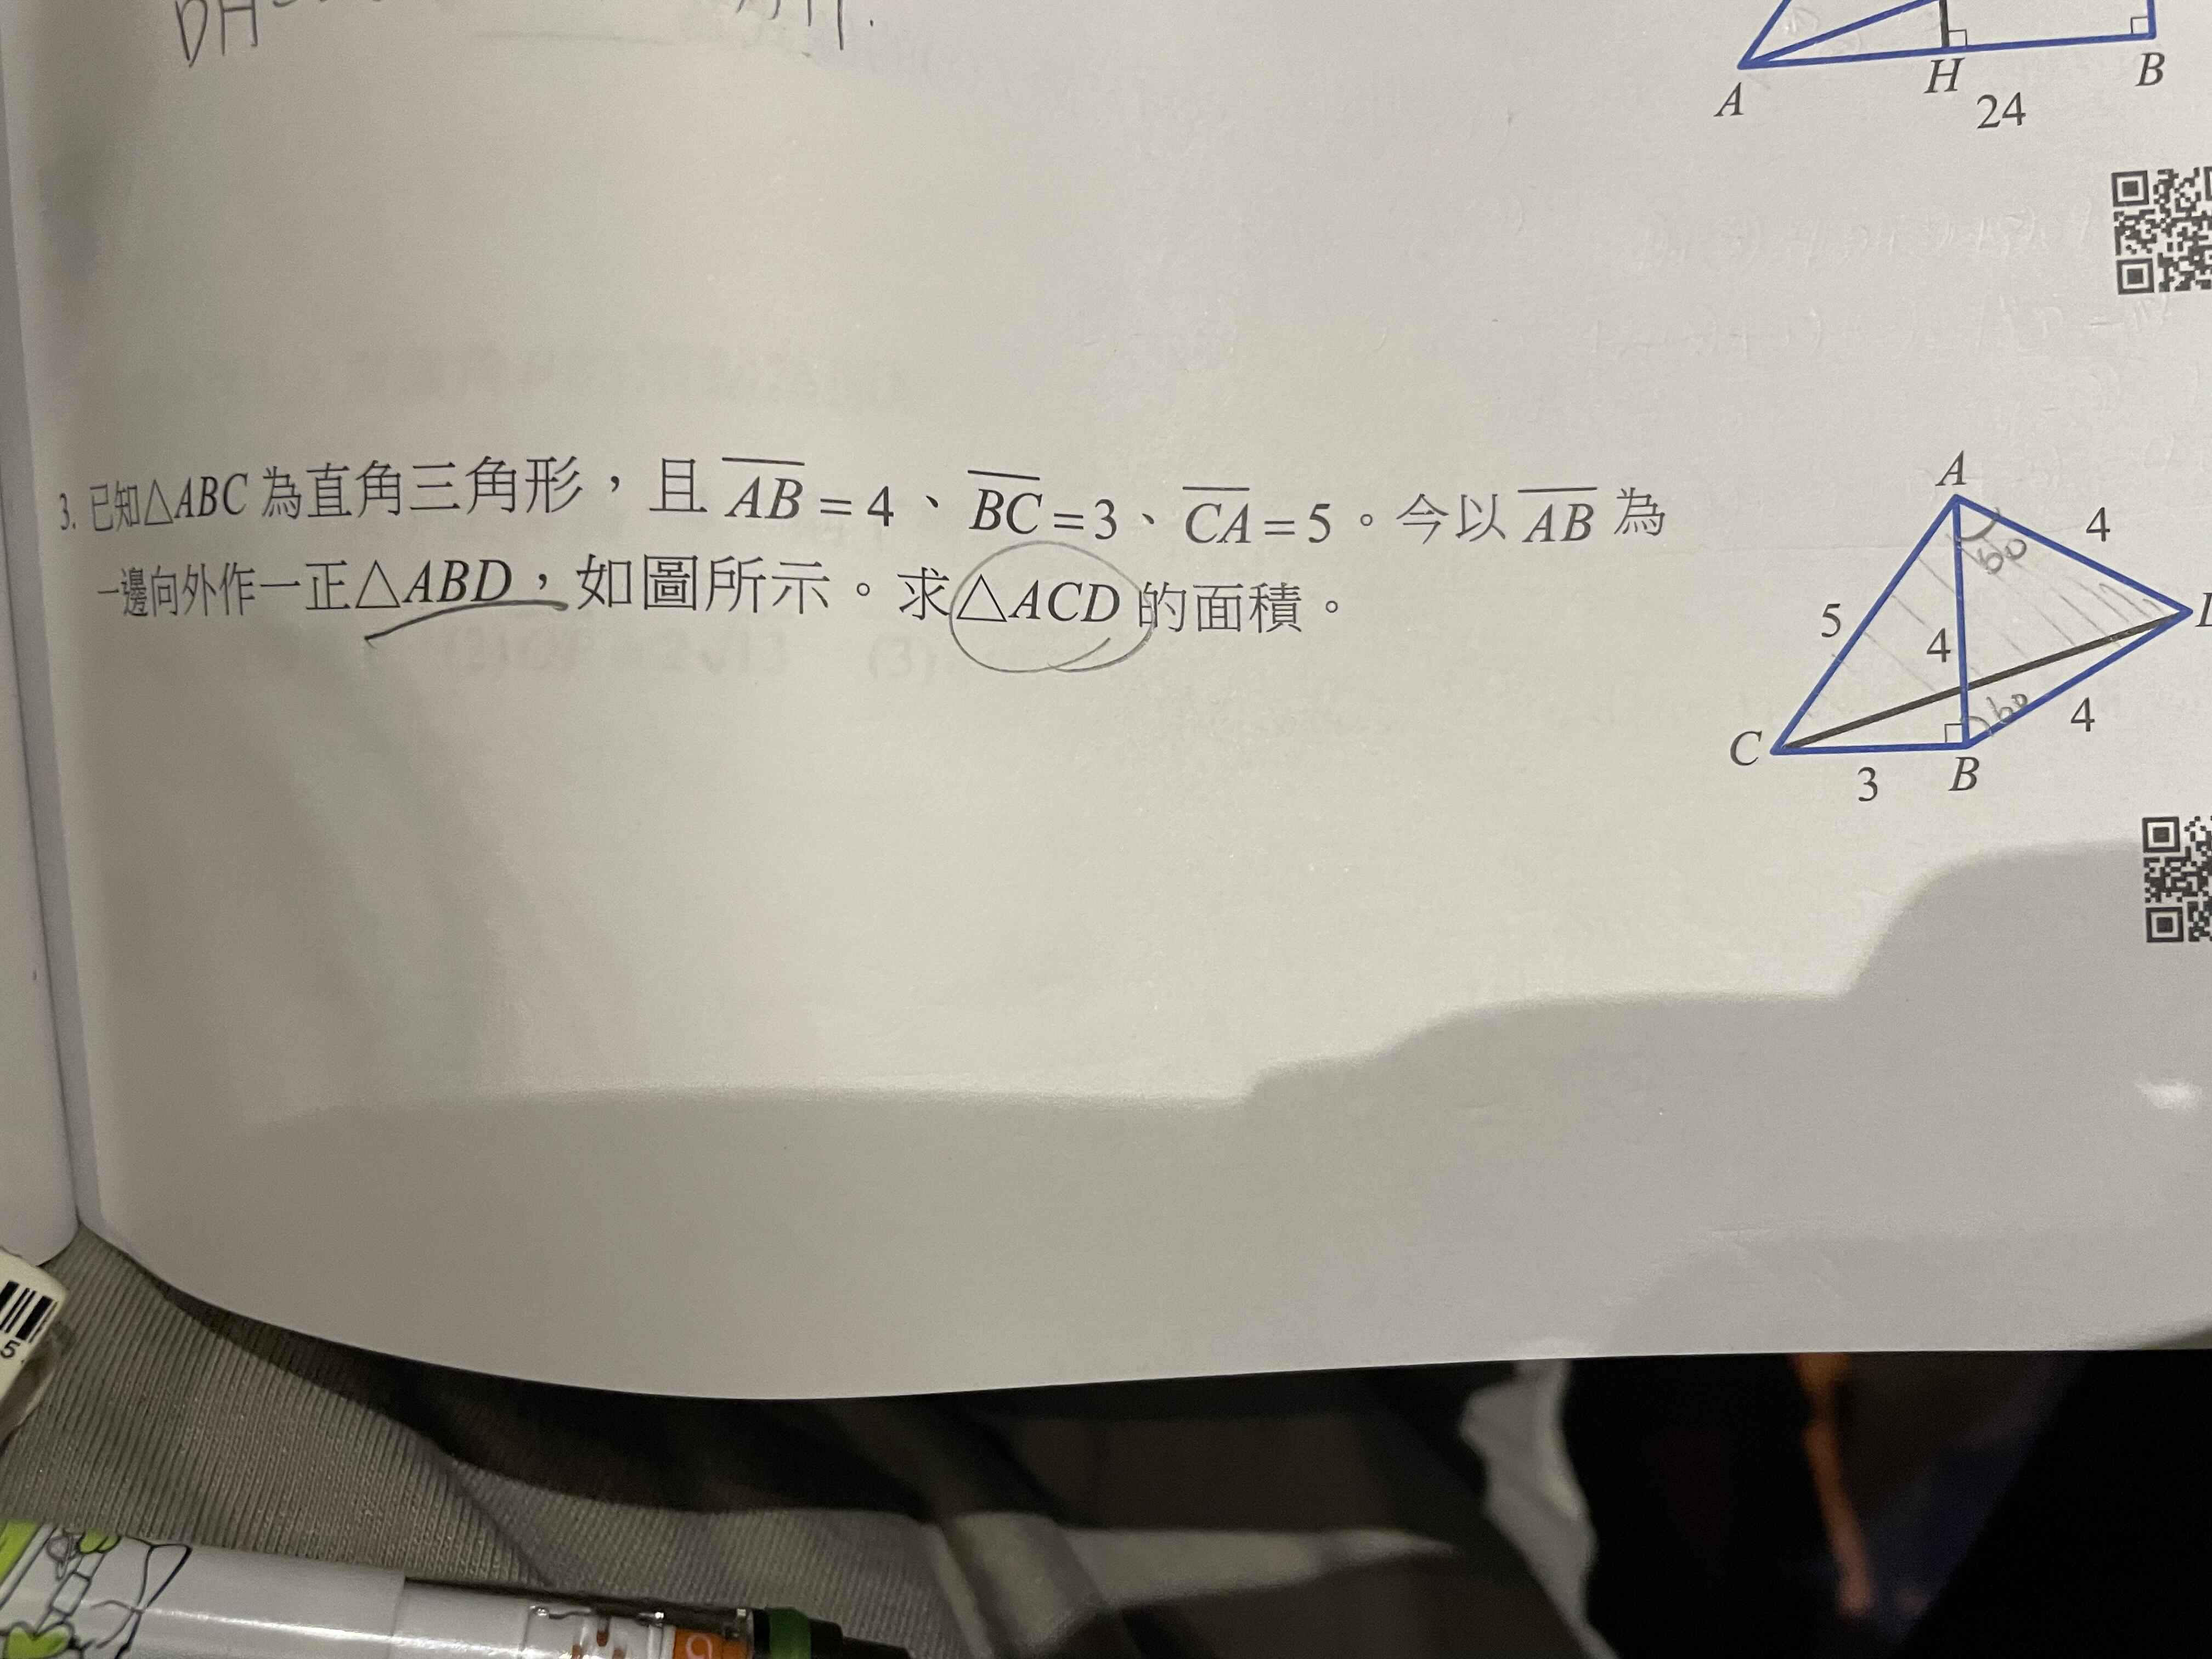 DH
A
H
B
24
3. 已知△ABC 為直角三角形，且 AB = 4、BC = 3、CA = 5。今以 AB 為
一邊向外作一正△ABD，如圖所示。求△ACD 的面積。
A
60
4
5
4
60
4
C
3
B
5